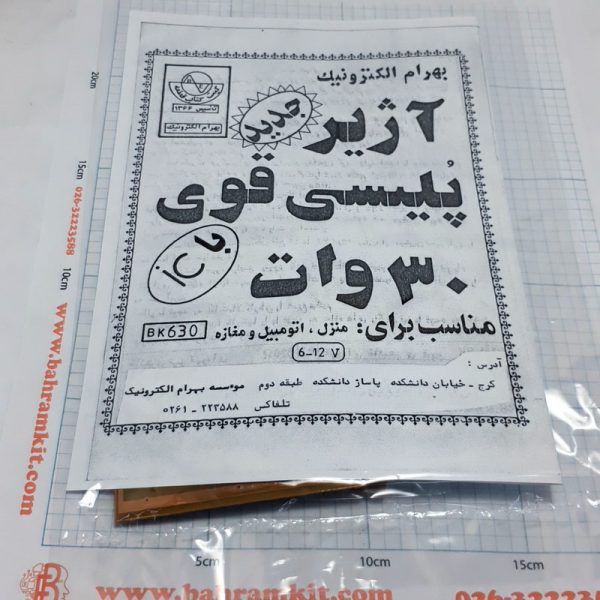 بهرام الکترونیك
تاسیس ۱۳۶۴
بهرام الکترونیك
جدید
آژیر
پلیسی قوی
با ic
۳۰ وات
مناسب برای: منزل، اتومبیل و مغازه
BK630
6-12 V
آدرس :
کرج - خیابان دانشکده پاساژ دانشکده طبقه دوم موسسه بهرام الکترونیک
تلفاکس ۲۲۳۵۸۸ - ۰۲۶۱
20cm
15cm
10cm
026-32223588
www.bahramkit.com
5cm
10cm
15cm
www.bahramkit.com
026-322235